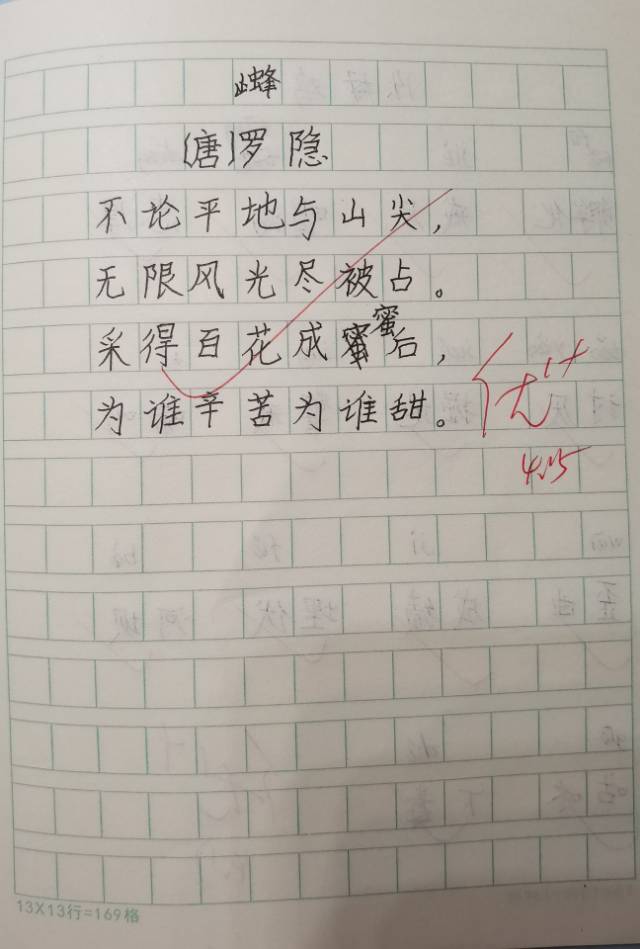 蜂
〔唐〕罗隐
不论平地与山尖，
无限风光尽被占。
采得百花成蜜后，
为谁辛苦为谁甜。
优+
4.15
13X13行=169格